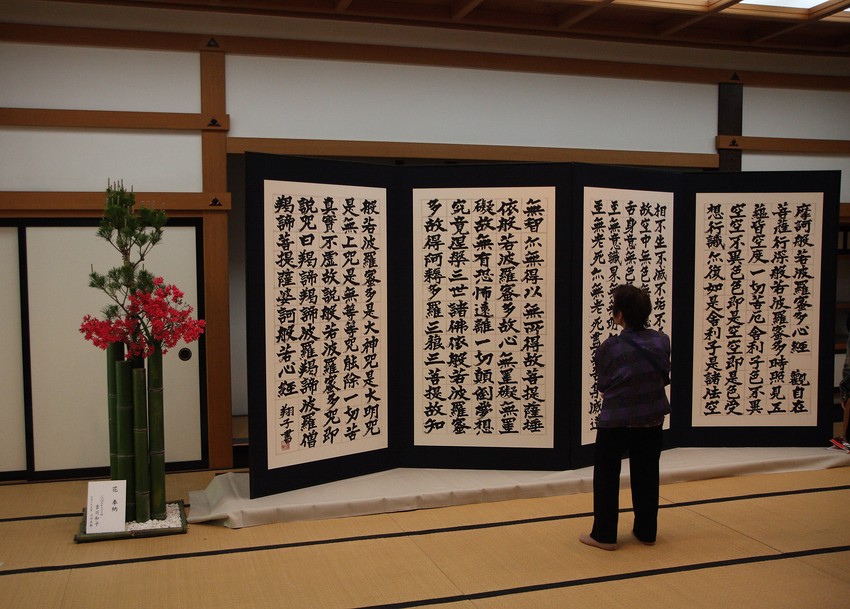 摩訶般若波羅蜜多心経 観自在
菩薩行深般若波羅蜜多時照見五
蘊皆空度一切苦厄舎利子色不異
空空不異色色即是空空即是色受
想行識亦復如是舎利子是諸法空
相不生不滅不垢不
故空中無色無
舌身意無色
至無意識界
至無老死亦無老死盡
無智亦無得以無所得故菩提薩埵
依般若波羅蜜多故心無罣礙無罣
礙故無有恐怖遠離一切顛倒夢想
究竟涅槃三世諸佛依般若波羅蜜
多故得阿耨多羅三藐三菩提故知
般若波羅蜜多是大神咒是大明咒
是無上咒是無等等咒能除一切苦
真實不虚故説般若波羅蜜多咒即
説咒曰羯諦羯諦波羅羯諦波羅僧
羯諦菩提薩婆訶般若心経 翔子書
花 奉納